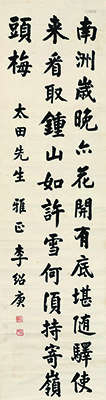 南洲歲晚六花開有底堪隨驛使
來看取鍾山如許雪何須持寄嶺
頭梅
太田先生 雅正 李紹庚